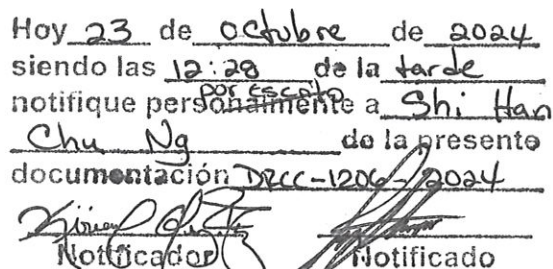 Hoy 23 de octubre de 2024
siendo las 12:28 de la tarde
por escrito
notifique personalmente a Shi Han
Chu Ng de la presente
documentación DRCC-1206-2024
Notificador Notificado